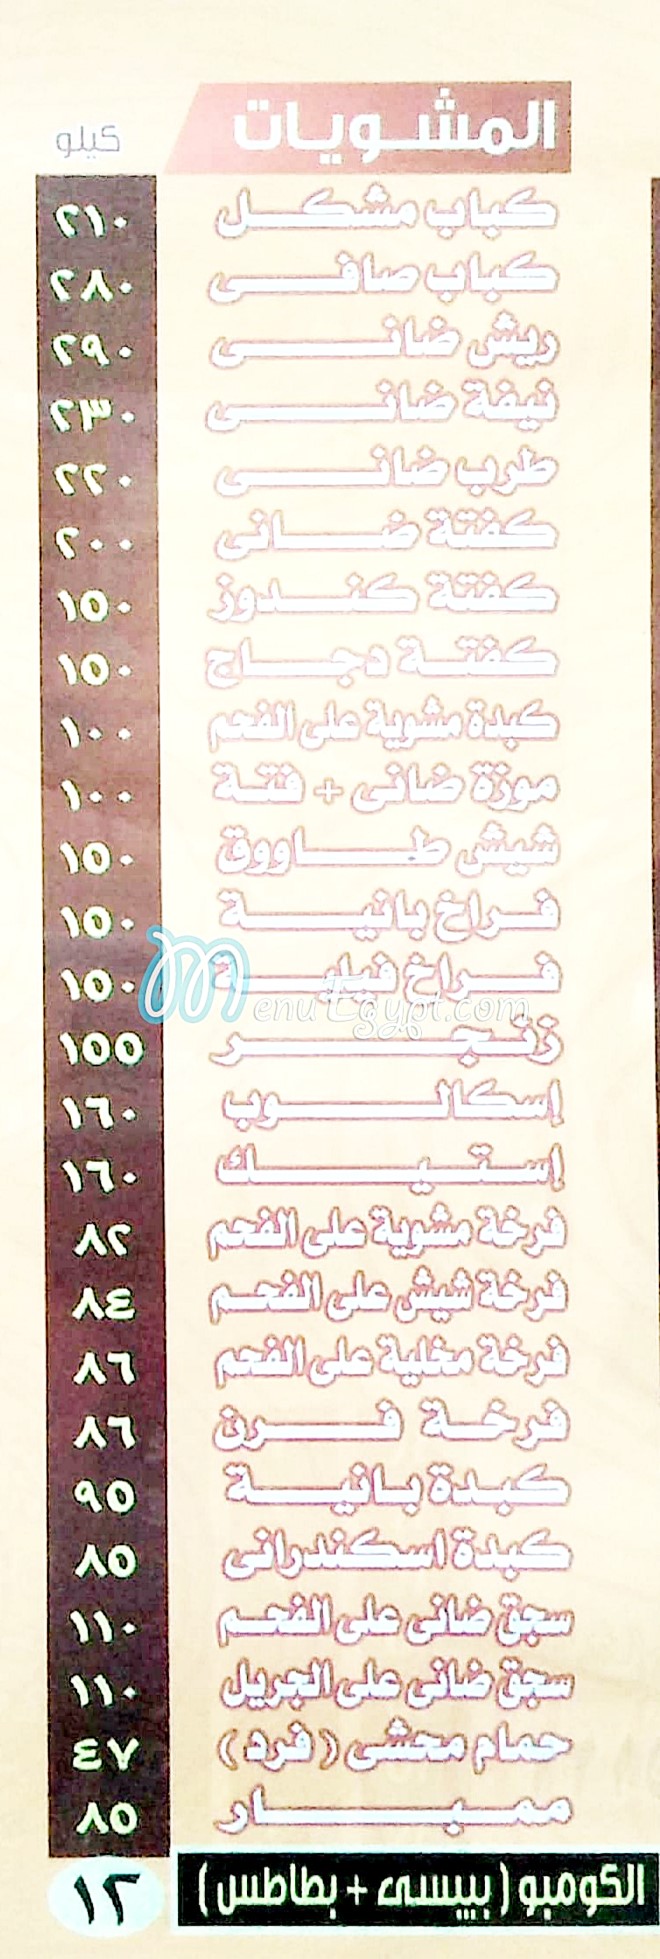 المشويات كيلو
كباب مشكل ٢١٠
كباب صافى ٢٨٠
ريش ضانى ٢٩٠
نيفة ضانى ٢٣٠
طرب ضانى ٢٢٠
كفتة ضانى ٢٠٠
كفتة كندوز ١٥٠
كفتة دجاج ١٥٠
كبدة مشوية على الفحم ١٠٠
موزة ضانى + فتة ١٠٠
شيش طاووق ١٥٠
فراخ بانية ١٥٠
فراخ فيلية ١٥٠
MenuEgypt.com
زنجر ١٥٥
إسكالوب ١٦٠
إستيك ١٦٠
فرخة مشوية على الفحم ٨٢
فرخة شيش على الفحم ٨٤
فرخة مخلية على الفحم ٨٦
فرخة فرن ٨٦
كبدة بانية ٩٥
كبدة اسكندرانى ٨٥
سجق ضانى على الفحم ١١٠
سجق ضانى على الجريل ١١٠
حمام محشى (فرد) ٤٧
ممبار ٨٥
الكومبو (بيبسى + بطاطس) ١٢